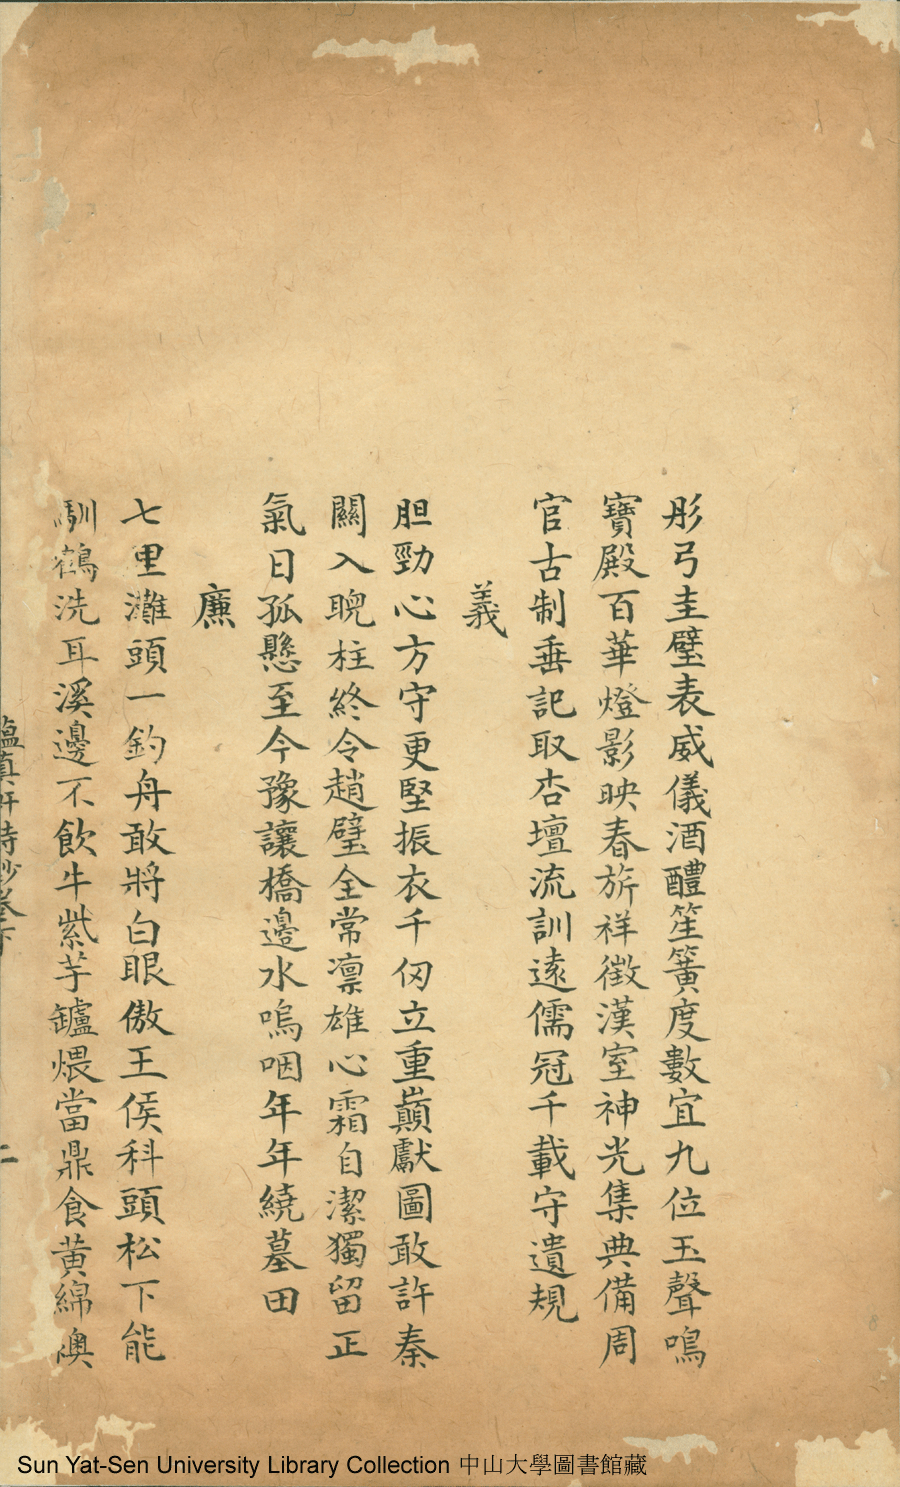 彤弓圭璧表威儀酒醴笙簧度數宜九位玉聲鳴
寶殿百華燈影映春旂祥徵漢室神光集典備周
官古制垂記取杏壇流訓遠儒冠千載守遺規
義
胆勁心方守更堅振衣千仭立重巔獻圖敢許秦
關入睨柱終令趙璧全常凛雄心霜自潔獨留正
氣日孤懸至今豫讓橋邊水嗚咽年年繞墓田
廉
七里灘頭一釣舟敢將白眼傲王侯科頭松下能
馴鶴洗耳溪邊不飲牛紫芋鑪煨當鼎食黄綿澳
蘊真軒詩鈔卷下
二
Sun Yat-Sen University Library Collection 中山大學圖書館藏